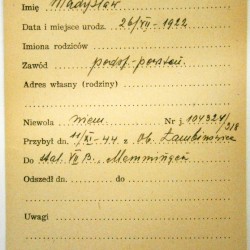 Imię Władysław
Data i miejsce urodz. 26/XII - 1922
Imiona rodziców
Zawód podof. - powstań.
Adres własny (rodziny)
Niewola niem Nr j. 104324/318
Przybył dn. 11/XI - 44 z ob. Łambinowice
Do stal. VII B. Memmingen
Odszedł dn. do
Uwagi